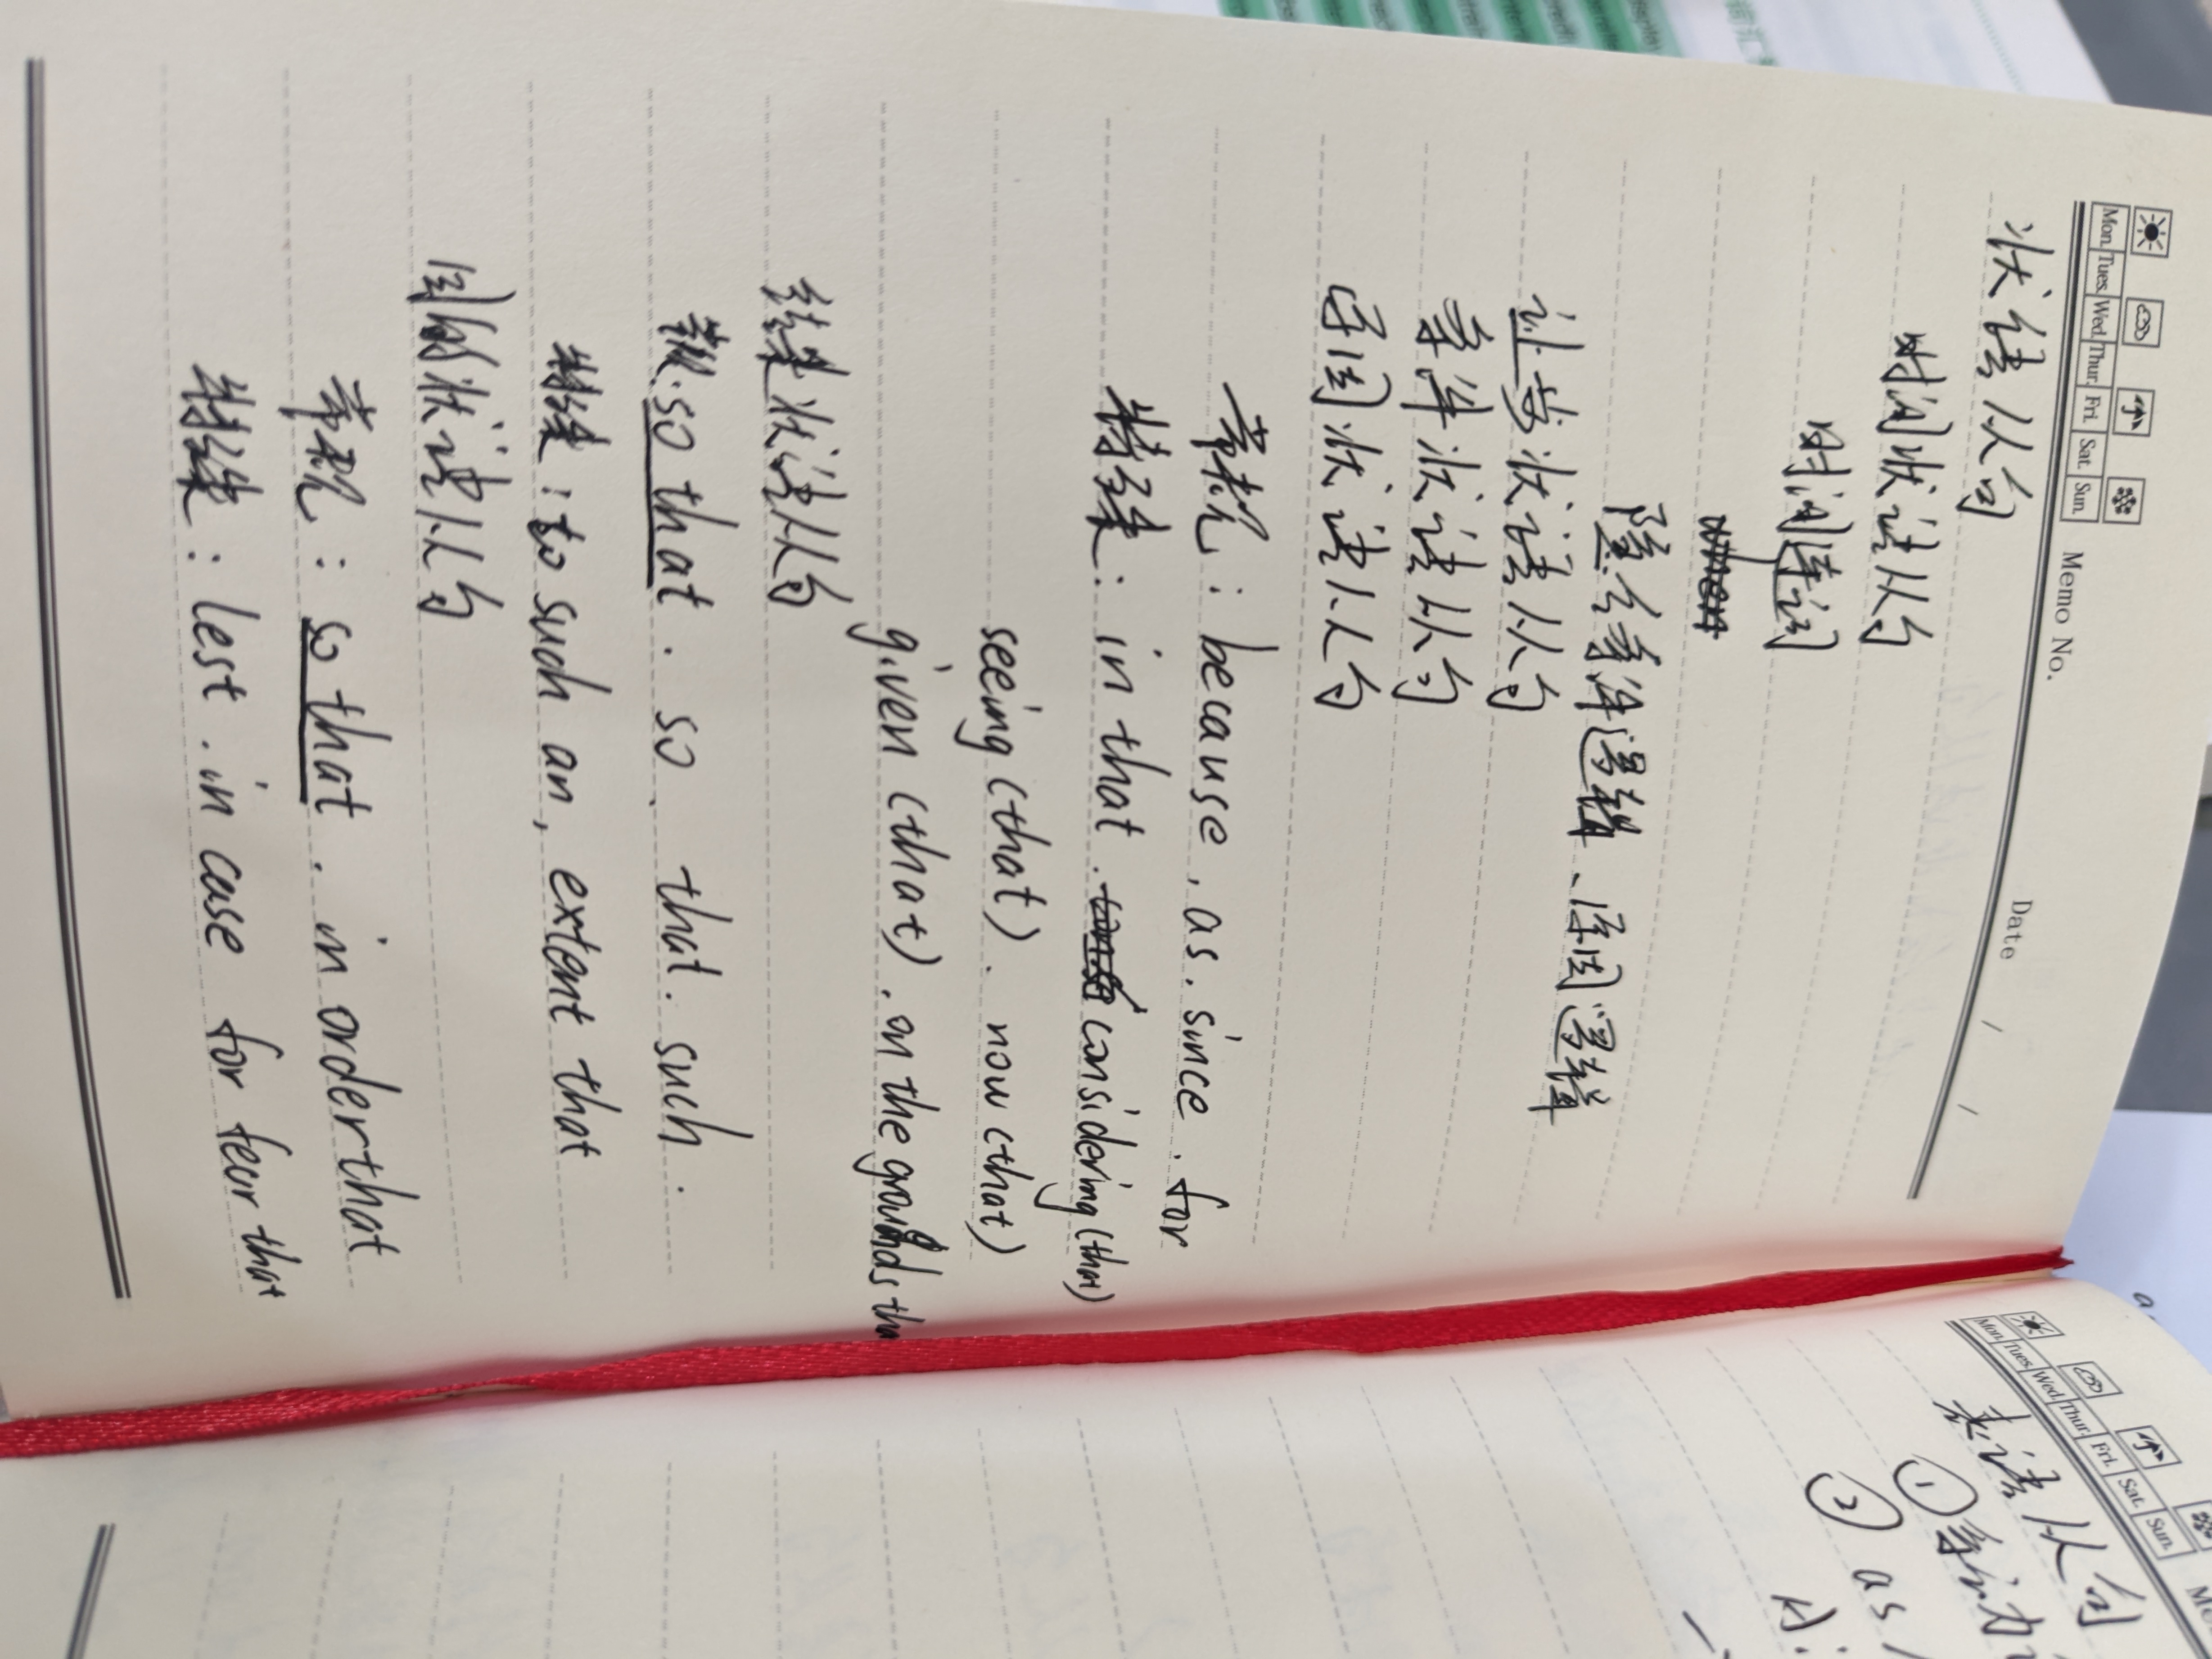 Mon. Tues. Wed. Thur. Fri. Sat. Sun.
Memo No.
Date / /
状语从句
时间状语从句
时间连词
when
隐含条件逻辑、原因逻辑
让步状语从句
条件状语从句
原因状语从句
常规：because, as, since, for
特殊：in that, considering (that)
seeing (that), now (that)
given (that), on the grounds tha
结果状语从句
常规. so that. so. that. such.
特殊：to such an, extent that
目的状语从句
常规：so that, in orderthat
特殊：lest. in case for fear that
Mon. Tues. Wed. Thur. Fri. Sat. Sun.
表语从句
①系动
② as